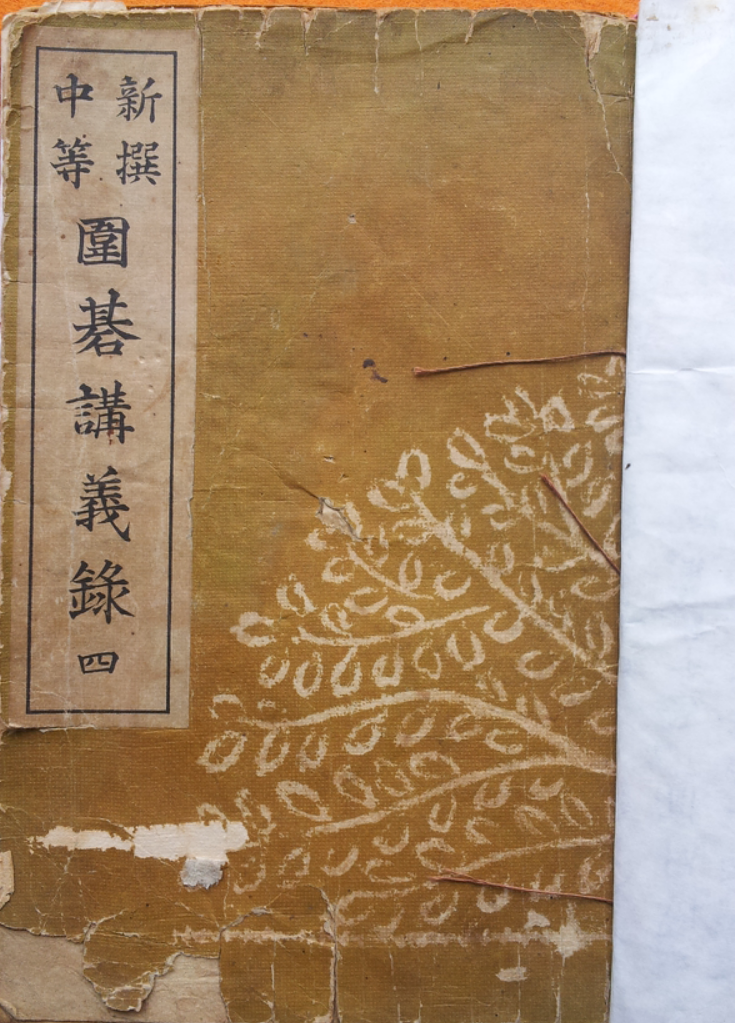 新撰
中等
圍碁講義錄
四